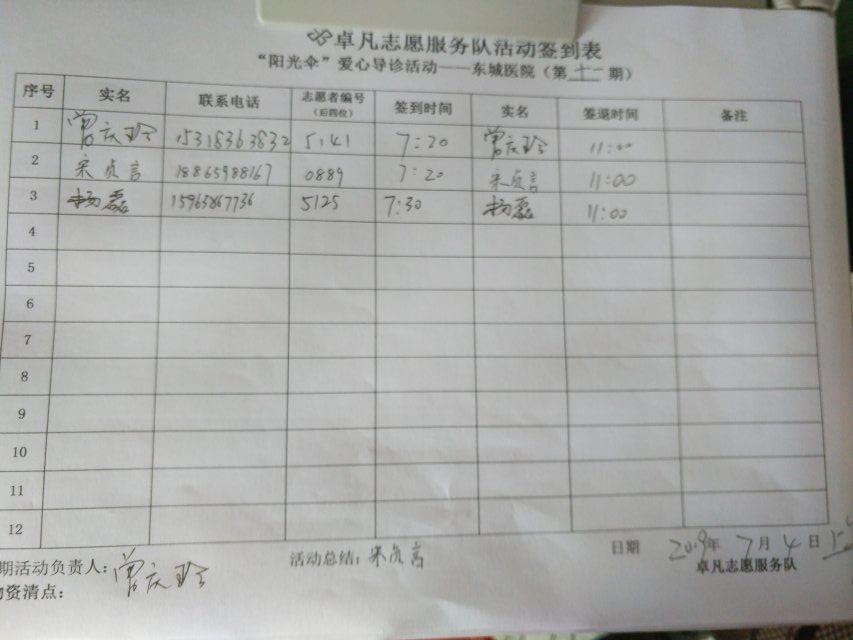 卓凡志愿服务队活动签到表
“阳光伞”爱心导诊活动——东城医院（第十二期）
序号 实名 联系电话 志愿者编号（后四位） 签到时间 实名 签退时间 备注
1 曾庆玲 15318363832 5141 7:20 曾庆玲 11:00
2 宋贞言 18865988167 0889 7:20 宋贞言 11:00
3 杨磊 15963867736 5125 7:30 杨磊 11:00
4
5
6
7
8
9
10
11
12
期活动负责人：曾庆玲 活动总结：宋贞言 日期 2019年7月4日上
资清点： 卓凡志愿服务队